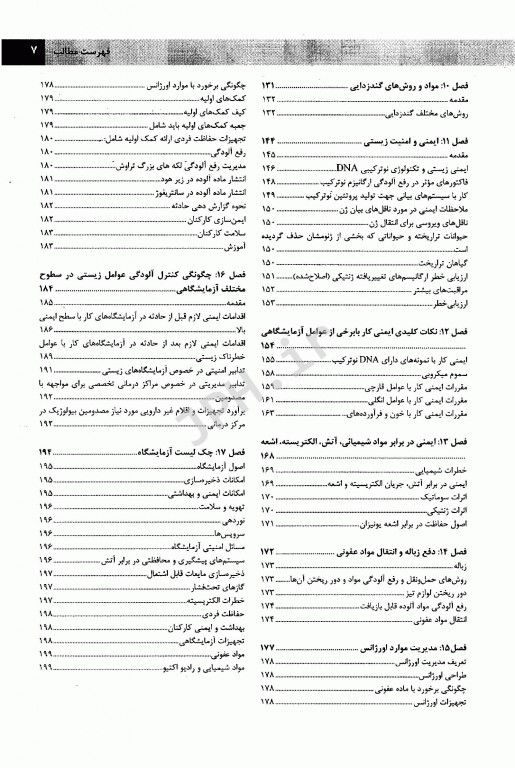 فهرست مطالب ۷
فصل ۱۰: مواد و روش‌های گندزدایی ۱۳۱
مقدمه ۱۳۲
روش‌های مختلف گندزدایی ۱۳۲
فصل ۱۱: ایمنی و امنیت زیستی ۱۴۴
مقدمه ۱۴۵
ایمنی زیستی و تکنولوژی نوترکیبی DNA ۱۴۶
فاکتورهای مؤثر در رفع آلودگی ارگانیزم نوترکیب ۱۴۸
کار با سیستم‌های بیانی جهت تولید پروتئین نوترکیب ۱۴۹
ملاحظات ایمنی در مورد ناقل‌های بیان ژن ۱۵۰
ناقل‌های ویروسی برای انتقال ژن ۱۵۰
حیوانات تراریخته و حیواناتی که بخشی از ژنومشان حذف گردیده
است ۱۵۰
گیاهان تراریخت ۱۵۰
ارزیابی خطر ارگانیسم‌های تغییریافته ژنتیکی (اصلاح‌شده) ۱۵۱
مراقبت‌های بیشتر ۱۵۲
ارزیابی‌خطر ۱۵۳
فصل ۱۲: نکات کلیدی ایمنی کار بابرخی از عوامل آزمایشگاهی
۱۵۴
ایمنی کار با نمونه‌های دارای DNA نوترکیب ۱۵۵
سموم میکروبی ۱۵۸
مقررات ایمنی کار با عوامل قارچی ۱۵۹
مقررات ایمنی کار با عوامل انگلی ۱۶۱
مقررات ایمنی کار با خون و فرآورده‌های ۱۶۳
فصل ۱۳: ایمنی در برابر مواد شیمیائی، آتش، الکتریسته، اشعه
۱۶۸
خطرات شیمیایی ۱۶۹
ایمنی در برابر آتش، جریان الکتریسیته و اشعه ۱۶۹
اثرات سوماتیک ۱۷۰
اثرات ژنتیکی ۱۷۰
اصول حفاظت در برابر اشعه یونیزان ۱۷۱
فصل ۱۴: دفع زباله و انتقال مواد عفونی ۱۷۲
زباله ۱۷۳
روش‌های حمل‌ونقل و رفع آلودگی مواد و دور ریختن آن‌ها ۱۷۳
دور ریختن لوازم تیز ۱۷۳
رفع آلودگی مواد آلوده قابل بازیافت ۱۷۴
انتقال مواد عفونی ۱۷۴
فصل۱۵: مدیریت موارد اورژانس ۱۷۷
تعریف مدیریت اورژانس ۱۷۸
طراحی اورژانس ۱۷۸
چگونگی برخورد با ماده عفونی ۱۷۸
تجهیزات اورژانس ۱۷۸
چگونگی برخورد با موارد اورژانس ۱۷۸
کمک‌های اولیه ۱۷۹
کیف کمک‌های اولیه ۱۷۹
جعبه کمک‌های اولیه باید شامل ۱۷۹
تجهیزات حفاظت فردی ارائه کمک اولیه شامل: ۱۸۰
رفع آلودگی ۱۸۰
مدیریت رفع آلودگی لکه های بزرگ تراوش ۱۸۰
انتشار ماده آلوده در زیر هود ۱۸۱
انتشار ماده آلوده در سانتریفوژ ۱۸۱
نحوه گزارش دهی حادثه ۱۸۲
ایمن‌سازی کارکنان ۱۸۲
سلامت کارکنان ۱۸۳
آموزش ۱۸۳
فصل ۱۶: چگونگی کنترل آلودگی عوامل زیستی در سطوح
مختلف آزمایشگاهی ۱۸۴
مقدمه ۱۸۵
اقدامات ایمنی لازم قبل از حادثه در آزمایشگاه‌های کار با سطح ایمنی
بالا ۱۸۶
اقدامات ایمنی لازم بعد از حادثه در آزمایشگاه‌های کار با عوامل
خطرناک زیستی ۱۸۹
تدابیر امنیتی در خصوص آزمایشگاه‌های زیستی ۱۹۱
تدابیر مدیریتی در خصوص مراکز درمانی تخصصی برای مواجهه با
مصدومین ۱۹۲
برآورد تجهیزات و اقلام غیر دارویی مورد نیاز مصدومین بیولوژیک در
مرکز درمانی ۱۹۳
فصل ۱۷: چک لیست آزمایشگاه ۱۹۴
اصول آزمایشگاه ۱۹۵
امکانات ذخیره‌سازی ۱۹۵
امکانات ایمنی و بهداشتی ۱۹۵
تهویه و سلامت ۱۹۶
نوردهی ۱۹۶
سرویس‌ها ۱۹۶
مسائل امنیتی آزمایشگاه ۱۹۶
سیستم‌های پیشگیری و محافظتی در برابر آتش ۱۹۶
ذخیره‌سازی مایعات قابل اشتعال ۱۹۷
گازهای تحت‌فشار ۱۹۷
خطرات الکتریسته ۱۹۷
حفاظت فردی ۱۹۸
بهداشت و ایمنی کارکنان ۱۹۸
تجهیزات آزمایشگاهی ۱۹۸
مواد عفونی ۱۹۹
مواد شیمیایی و رادیو اکتیو ۱۹۹